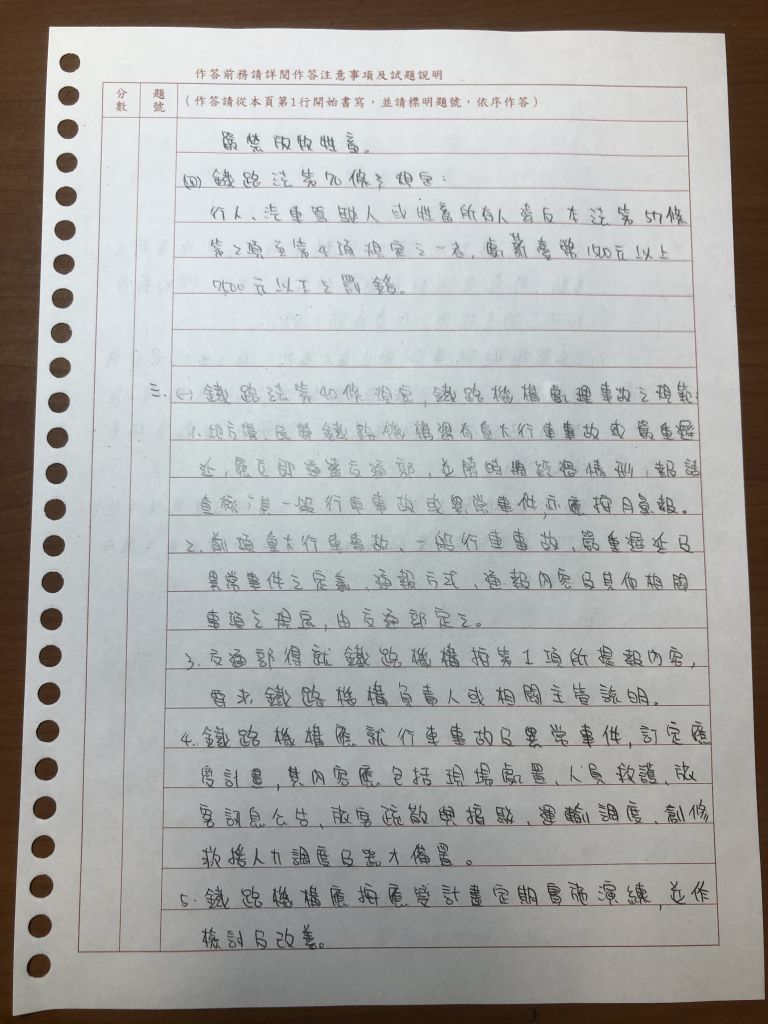 作答前務請詳閱作答注意事項及試題說明
分數
題號
(作答請從本頁第1行開始書寫,並請標明題號,依序作答)
嚴禁放牧牲畜。
(四) 鐵路法第70條之規定:
行人、汽車駕駛人或牲畜所有人違反本法第57條
第2項至第4項規定之一者,處新臺幣1500元以上
7500元以下之罰鍰。
三、(一) 鐵路法第40條規定,鐵路機構處理事故之規範:
1. 地方營、民營鐵路機構遇有重大行車事故或嚴重遲
延,應立即通報交通部,並隨時將經過情形,報請
查核;其一般行車事故或異常事件,亦應按月彙報。
2. 前項重大行車事故、一般行車事故、嚴重遲延及
異常事件之定義、通報方式、通報內容及其他相關
事項之規定,由交通部定之。
3. 交通部得就鐵路機構按第1項所提報內容,
要求鐵路機構負責人或相關主管說明。
4. 鐵路機構應就行車事故及異常事件,訂定應
變計畫,其內容應包括現場處置、人員救護、旅
客訊息公告、旅客疏散與接駁、運輸調度、創修
救援人力調度及器才備置。
5. 鐵路機構應按應變計畫定期實施演練,並作
檢討及改善。